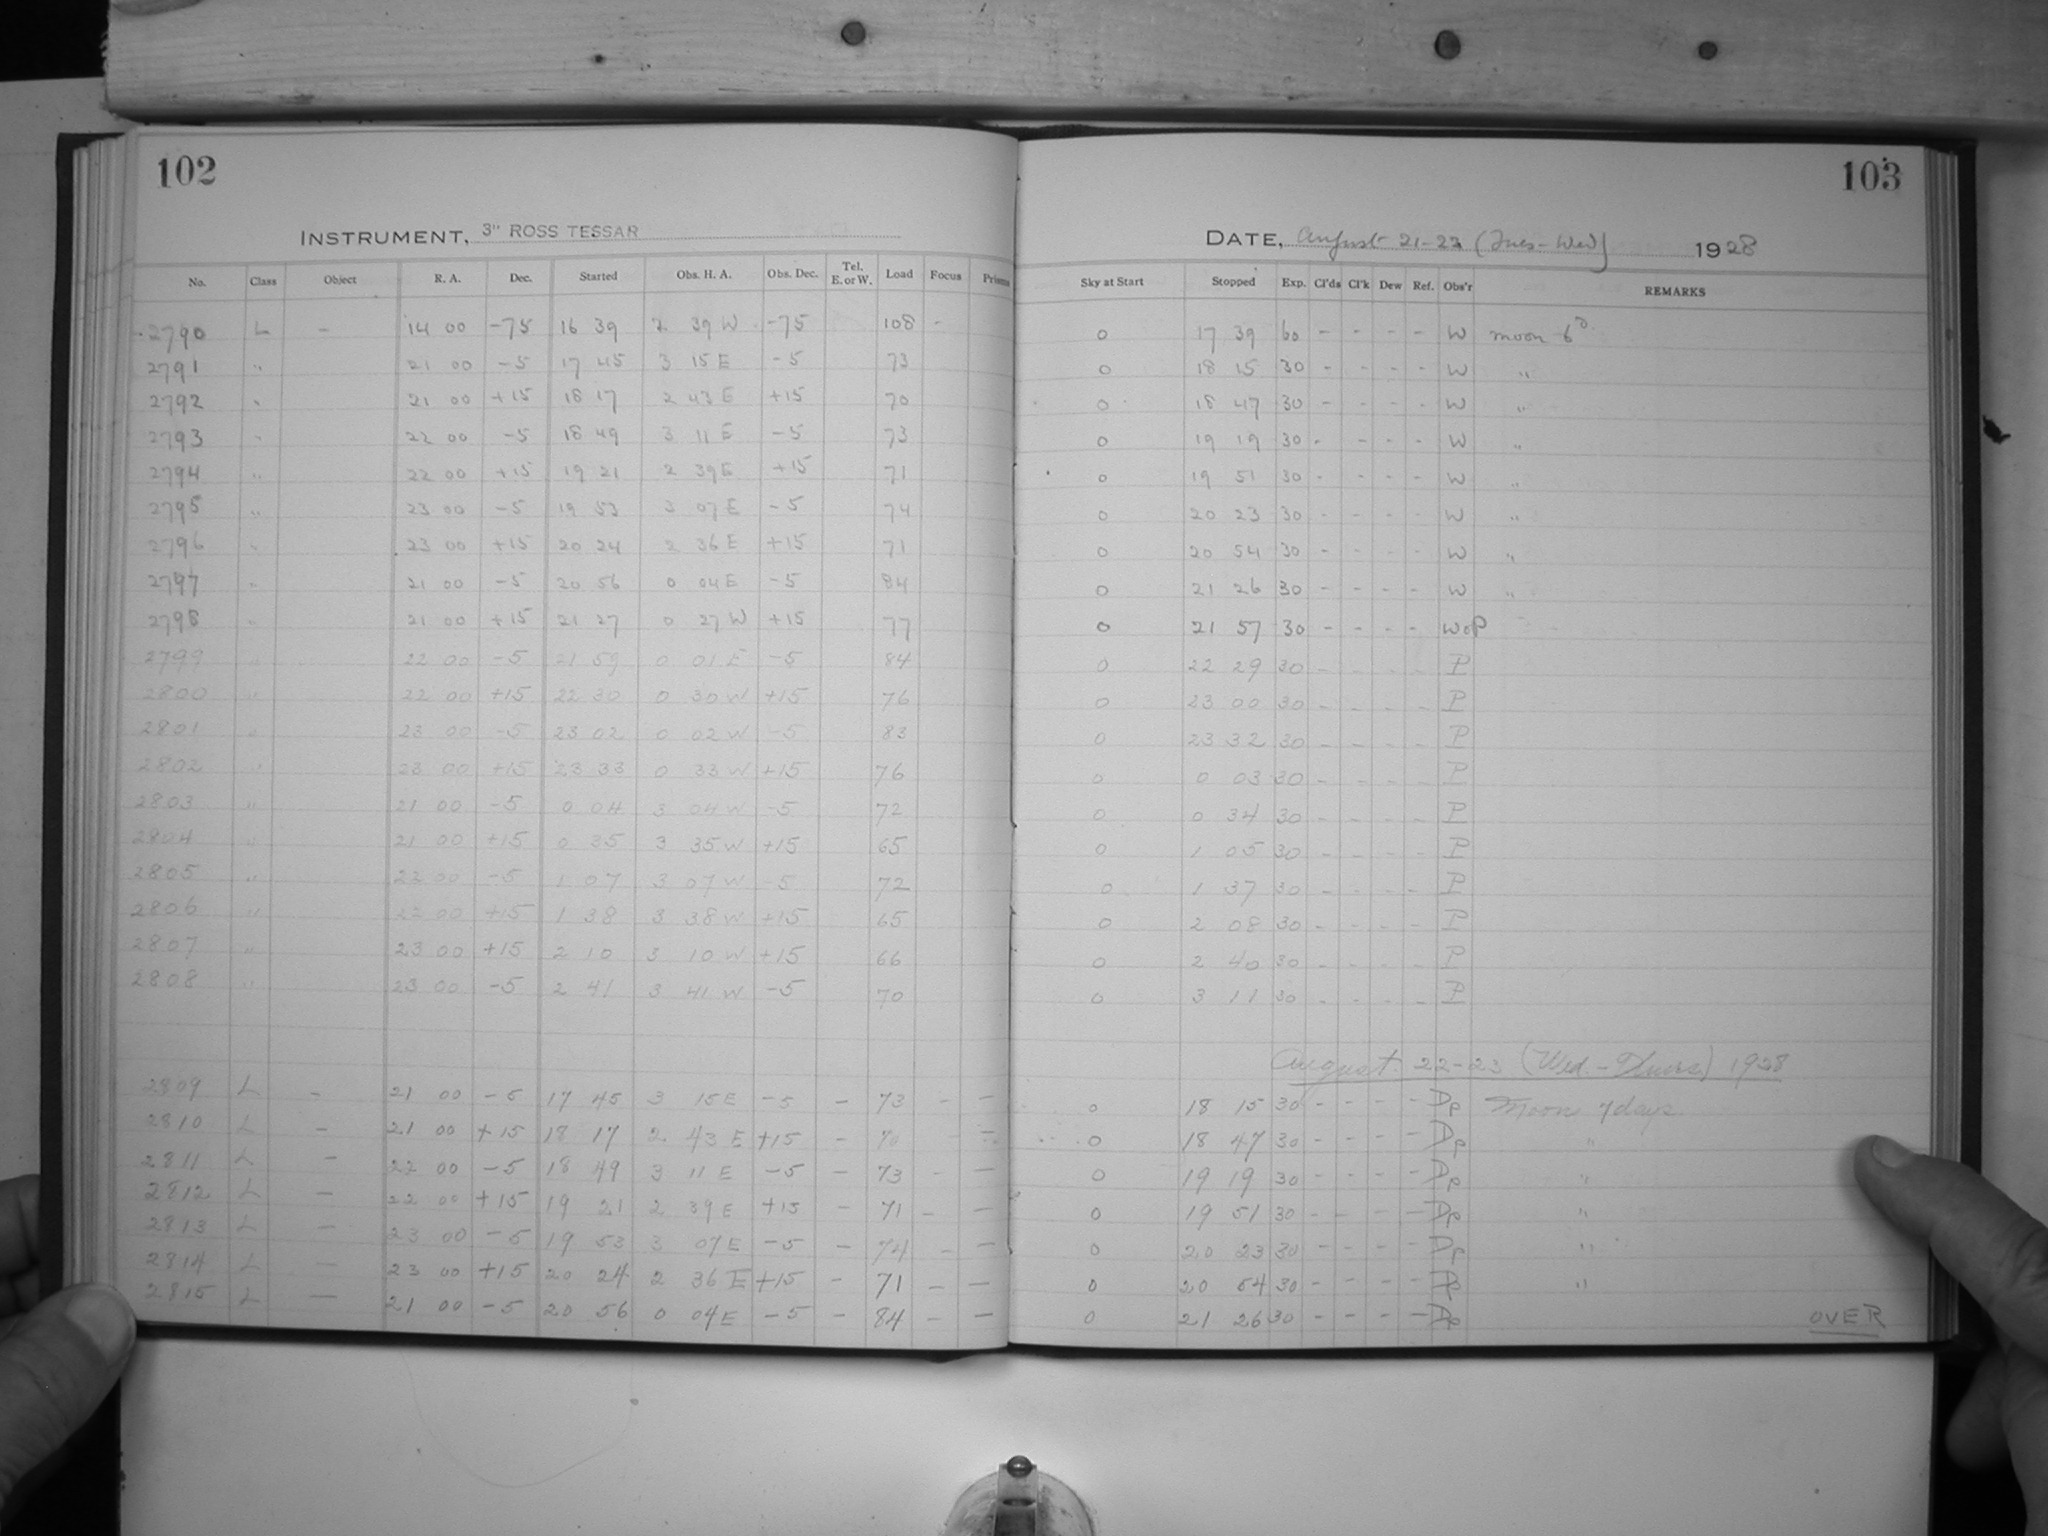 102
INSTRUMENT, 3" ROSS TESSAR
No. Class Object R. A. Dec. Started Obs. H. A. Obs. Dec. Tel. E. or W. Load Focus Prisms
2790 L - 14 00 -75 16 39 2 39 W -75 108 -
2791 " 21 00 -5 17 45 3 15 E -5 73
2792 " 21 00 +15 18 17 2 43 E +15 70
2793 " 22 00 -5 18 49 3 11 E -5 73
2794 " 22 00 +15 19 21 2 39 E +15 71
2795 " 23 00 -5 19 53 3 07 E -5 74
2796 " 23 00 +15 20 24 2 36 E +15 71
2797 " 21 00 -5 20 56 0 04 E -5 84
2798 " 21 00 +15 21 27 0 27 W +15 77
2799 " 22 00 -5 21 59 0 01 E -5 84
2800 " 22 00 +15 22 30 0 30 W +15 76
2801 " 23 00 -5 23 02 0 02 W -5 83
2802 " 23 00 +15 23 33 0 33 W +15 76
2803 " 21 00 -5 0 04 3 04 W -5 72
2804 " 21 00 +15 0 35 3 35 W +15 65
2805 " 22 00 -5 1 07 3 07 W -5 72
2806 " 22 00 +15 1 38 3 38 W +15 65
2807 " 23 00 +15 2 10 3 10 W +15 66
2808 " 23 00 -5 2 41 3 41 W -5 70
2809 L - 21 00 -5 17 45 3 15 E -5 - 73 - -
2810 L - 21 00 +15 18 17 2 43 E +15 - 70 - -
2811 L - 22 00 -5 18 49 3 11 E -5 - 73 - -
2812 L - 22 00 +15 19 21 2 39 E +15 - 71 - -
2813 L - 23 00 -5 19 53 3 07 E -5 - 74 - -
2814 L - 23 00 +15 20 24 2 36 E +15 - 71 - -
2815 L - 21 00 -5 20 56 0 04 E -5 - 84 - -
103
DATE, August 21-22 (Tues-Wed) 1928
Sky at Start Stopped Exp. Cl'ds Cl'k Dew Ref. Obs'r REMARKS
0 17 39 60 - - - - W moon 6D
0 18 15 30 - - - - W "
0 18 47 30 - - - - W "
0 19 19 30 - - - - W "
0 19 51 30 - - - - W "
0 20 23 30 - - - - W "
0 20 54 30 - - - - W "
0 21 26 30 - - - - W "
0 21 57 30 - - - - WoP
0 22 29 30 - - - - P
0 23 00 30 - - - - P
0 23 32 30 - - - - P
0 0 03 30 - - - - P
0 0 34 30 - - - - P
0 1 05 30 - - - - P
0 1 37 30 - - - - P
0 2 08 30 - - - - P
0 2 40 30 - - - - P
0 3 11 30 - - - - P
August 22-23 (Wed.-Thurs) 1928
0 18 15 30 - - - - Dp Moon 7 days
0 18 47 30 - - - - Dp "
0 19 19 30 - - - - Dp "
0 19 51 30 - - - - Dp "
0 20 23 30 - - - - Dp "
0 20 54 30 - - - - Dp "
0 21 26 30 - - - - Dp
OVER